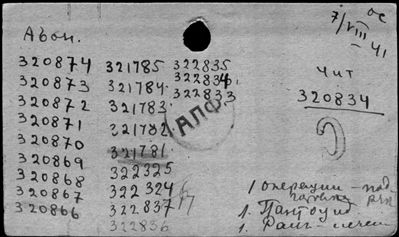 ос
7/VIII – 41
Абон.
320874 321785 322835
320873 321784 322834
320872 321783 322833
320871 321782
320870 321781
320869 322325
320868 322324
320867 322837
320866 322836
АПФ
Чит
320834
1 операции – под
1. Пантоцид
1.